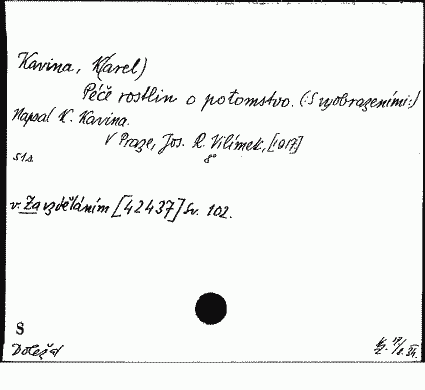 Kavina, K(arel)
Péče rostlin o potomstvo. (: S vyobrazeními :)
Napsal K. Kavina.
V Praze, Jos. R. Vilímek, [1917]
8°
51 s.
v. Za vzděláním [42437] Sv. 102.
S
Doležal